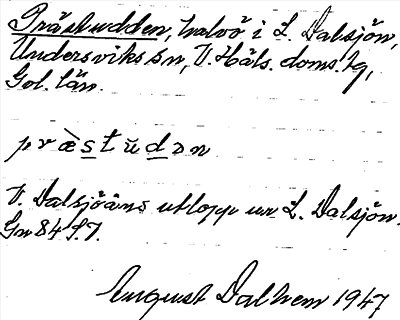 Prästudden, halvö i L. Dalsjön,
Undersviks sn, V. Häls. doms. hg,
Gol. län.
præ̀stŭdən
V. Dalsjöåns utlopp ur L. Dalsjön.
Gn 84 S.7.
August Dalhem 1947